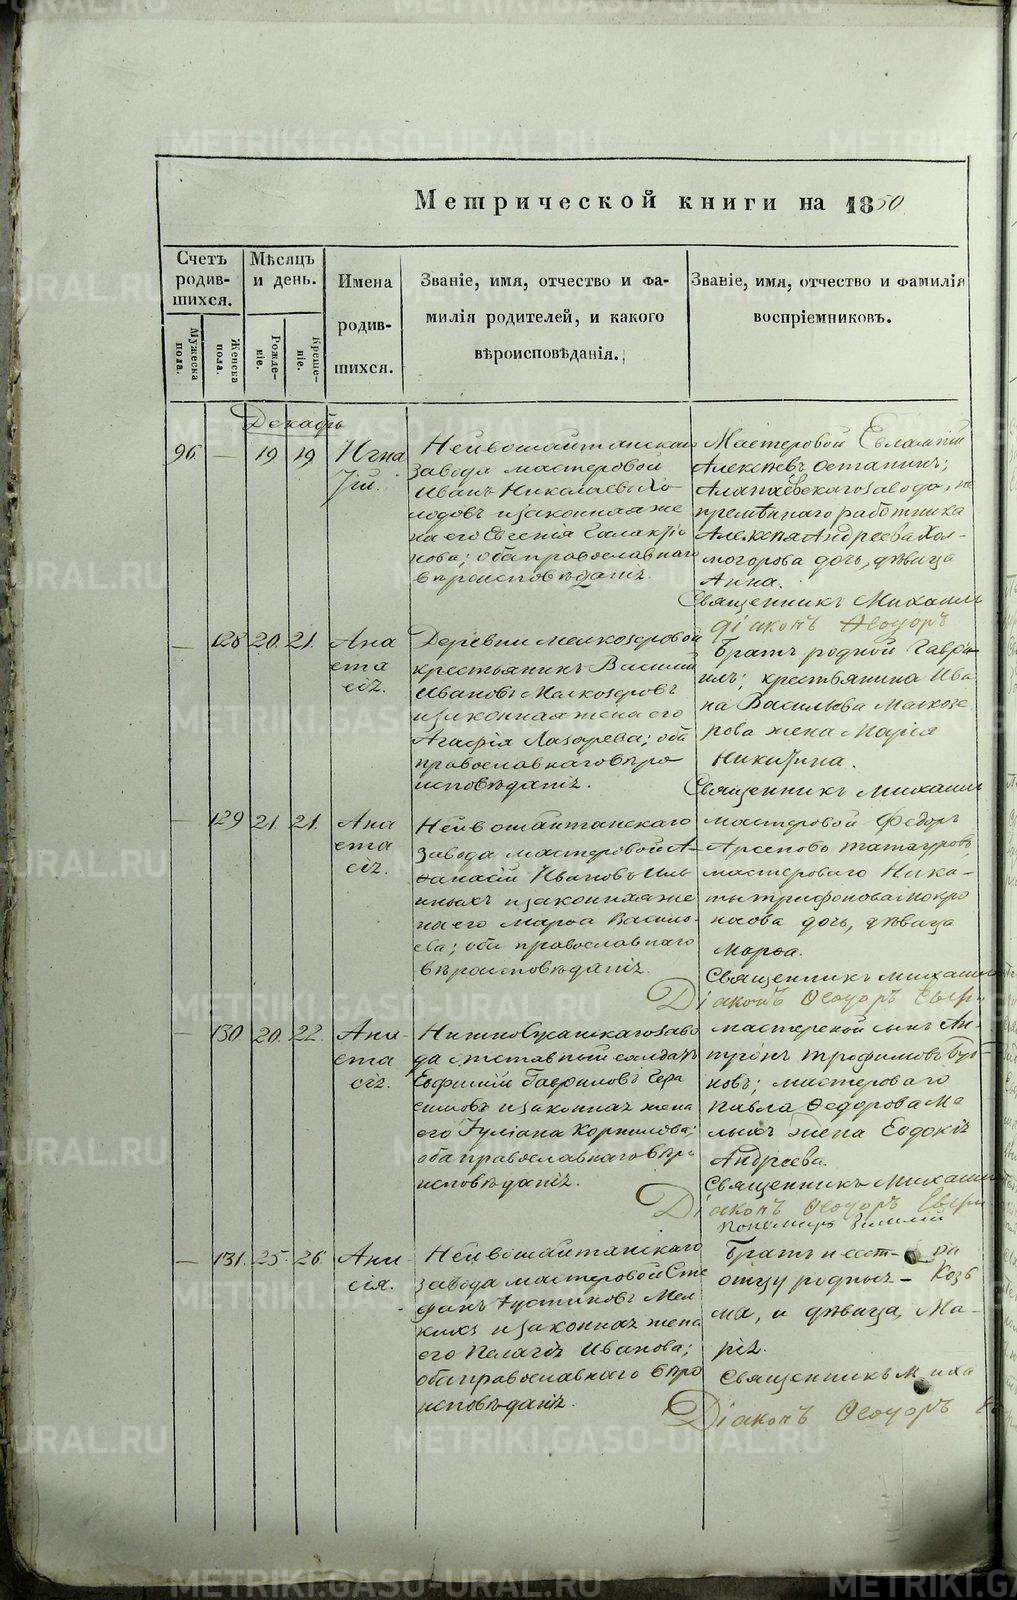 Метрической книги на 1850
Счетъ родив-шихся.
Мужеска пола.
Женска пола.
Мѣсяцъ и день.
Рожде-ніе.
Креще-ніе.
Имена
родив-
шихся.
Званіе, имя, отчество и фа-
милія родителей, и какого
вѣроисповѣданія.
Званіе, имя, отчество и фамилія
воспріемниковъ.
Декабрь
96 — 19 19
Игна
тій.
Нейвошайтанскаго
завода мастеровой
Иванъ Николаевъ Хо
лодовъ и законная же
на его Евгенія Галактіо
нова; оба православнаго
вѣроисповѣданія.
Мастеровой Евлампій
Алексѣевъ Останинъ;
Алапаевскаго завода, не
премѣннаго работника
Алексѣя Андреева Хол-
могорова дочь, дѣвица
Анна.
Священникъ Михаилъ
Діаконъ Ѳеодоръ
— 128 20. 21.
Ана
ста
сія.
Деревни Мелкозеровой
крестьянинъ Василій
Ивановъ Мелкозеровъ
и законная жена его
Агафія Лазарева; оба
православнаго вѣро
исповѣданія.
Братъ родной Гаврі-
илъ; крестьянина Ива
на Васильева Мелкозе
рова жена Марія
Никитина.
Священникъ Михаилъ
— 129 21. 21.
Ана
ста
сія.
Нейвошайтанскаго
завода мастеровой А-
ѳанасій Ивановъ Иль
иныхъ и законная же
на его Марѳа Василь-
ева; оба православнаго
вѣроисповѣданія.
мастеровой Федоръ
Арсеновъ Татауровъ,
мастероваго Ники-
ты Трифонова Мокро
носова дочь, дѣвица
Марѳа.
Священникъ Михаилъ
Діаконъ Ѳеодоръ
— 130 20. 22.
Ана
ста
сія.
Нижнесусанскаго заво
да отставный солдатъ
Евфимій Гавриловъ Гера
симовъ и законная жена
его Іуліана Корнилова;
оба православнаго вѣро
исповѣданія.
мастерской сынъ Ан-
тропъ Трофимовъ
мастероваго
Павла Ѳедорова Ма
лыхъ жена Евдокія
Андреева.
Священникъ Михаилъ
Діаконъ Ѳеодоръ
Пономарь
— 131. 25. 26.
Ани-
сія.
Нейвошайтанскаго
завода мастеровой Сте
фанъ Іустиновъ Мел
кихъ и законная жена
его Пелагія Иванова;
оба православнаго вѣро
исповѣданія.
Братъ и сест- ра
отцу родные - Козь
ма, и дѣвица, Ма-
рія.
Священникъ Миха
Діаконъ Ѳеодоръ
METRIKI.GASO-URAL.RU